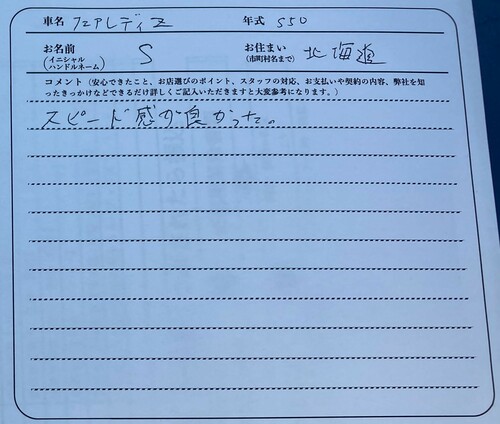 車名 フェアレディZ 年式 S50
お名前 (イニシャル ハンドルネーム) S お住まい (市町村名まで) 北海道
コメント（安心できたこと、お店選びのポイント、スタッフの対応、お支払いや契約の内容、弊社を知
ったきっかけなどできるだけ詳しくご記入いただきますと大変参考になります。）
スピード感が良かった。